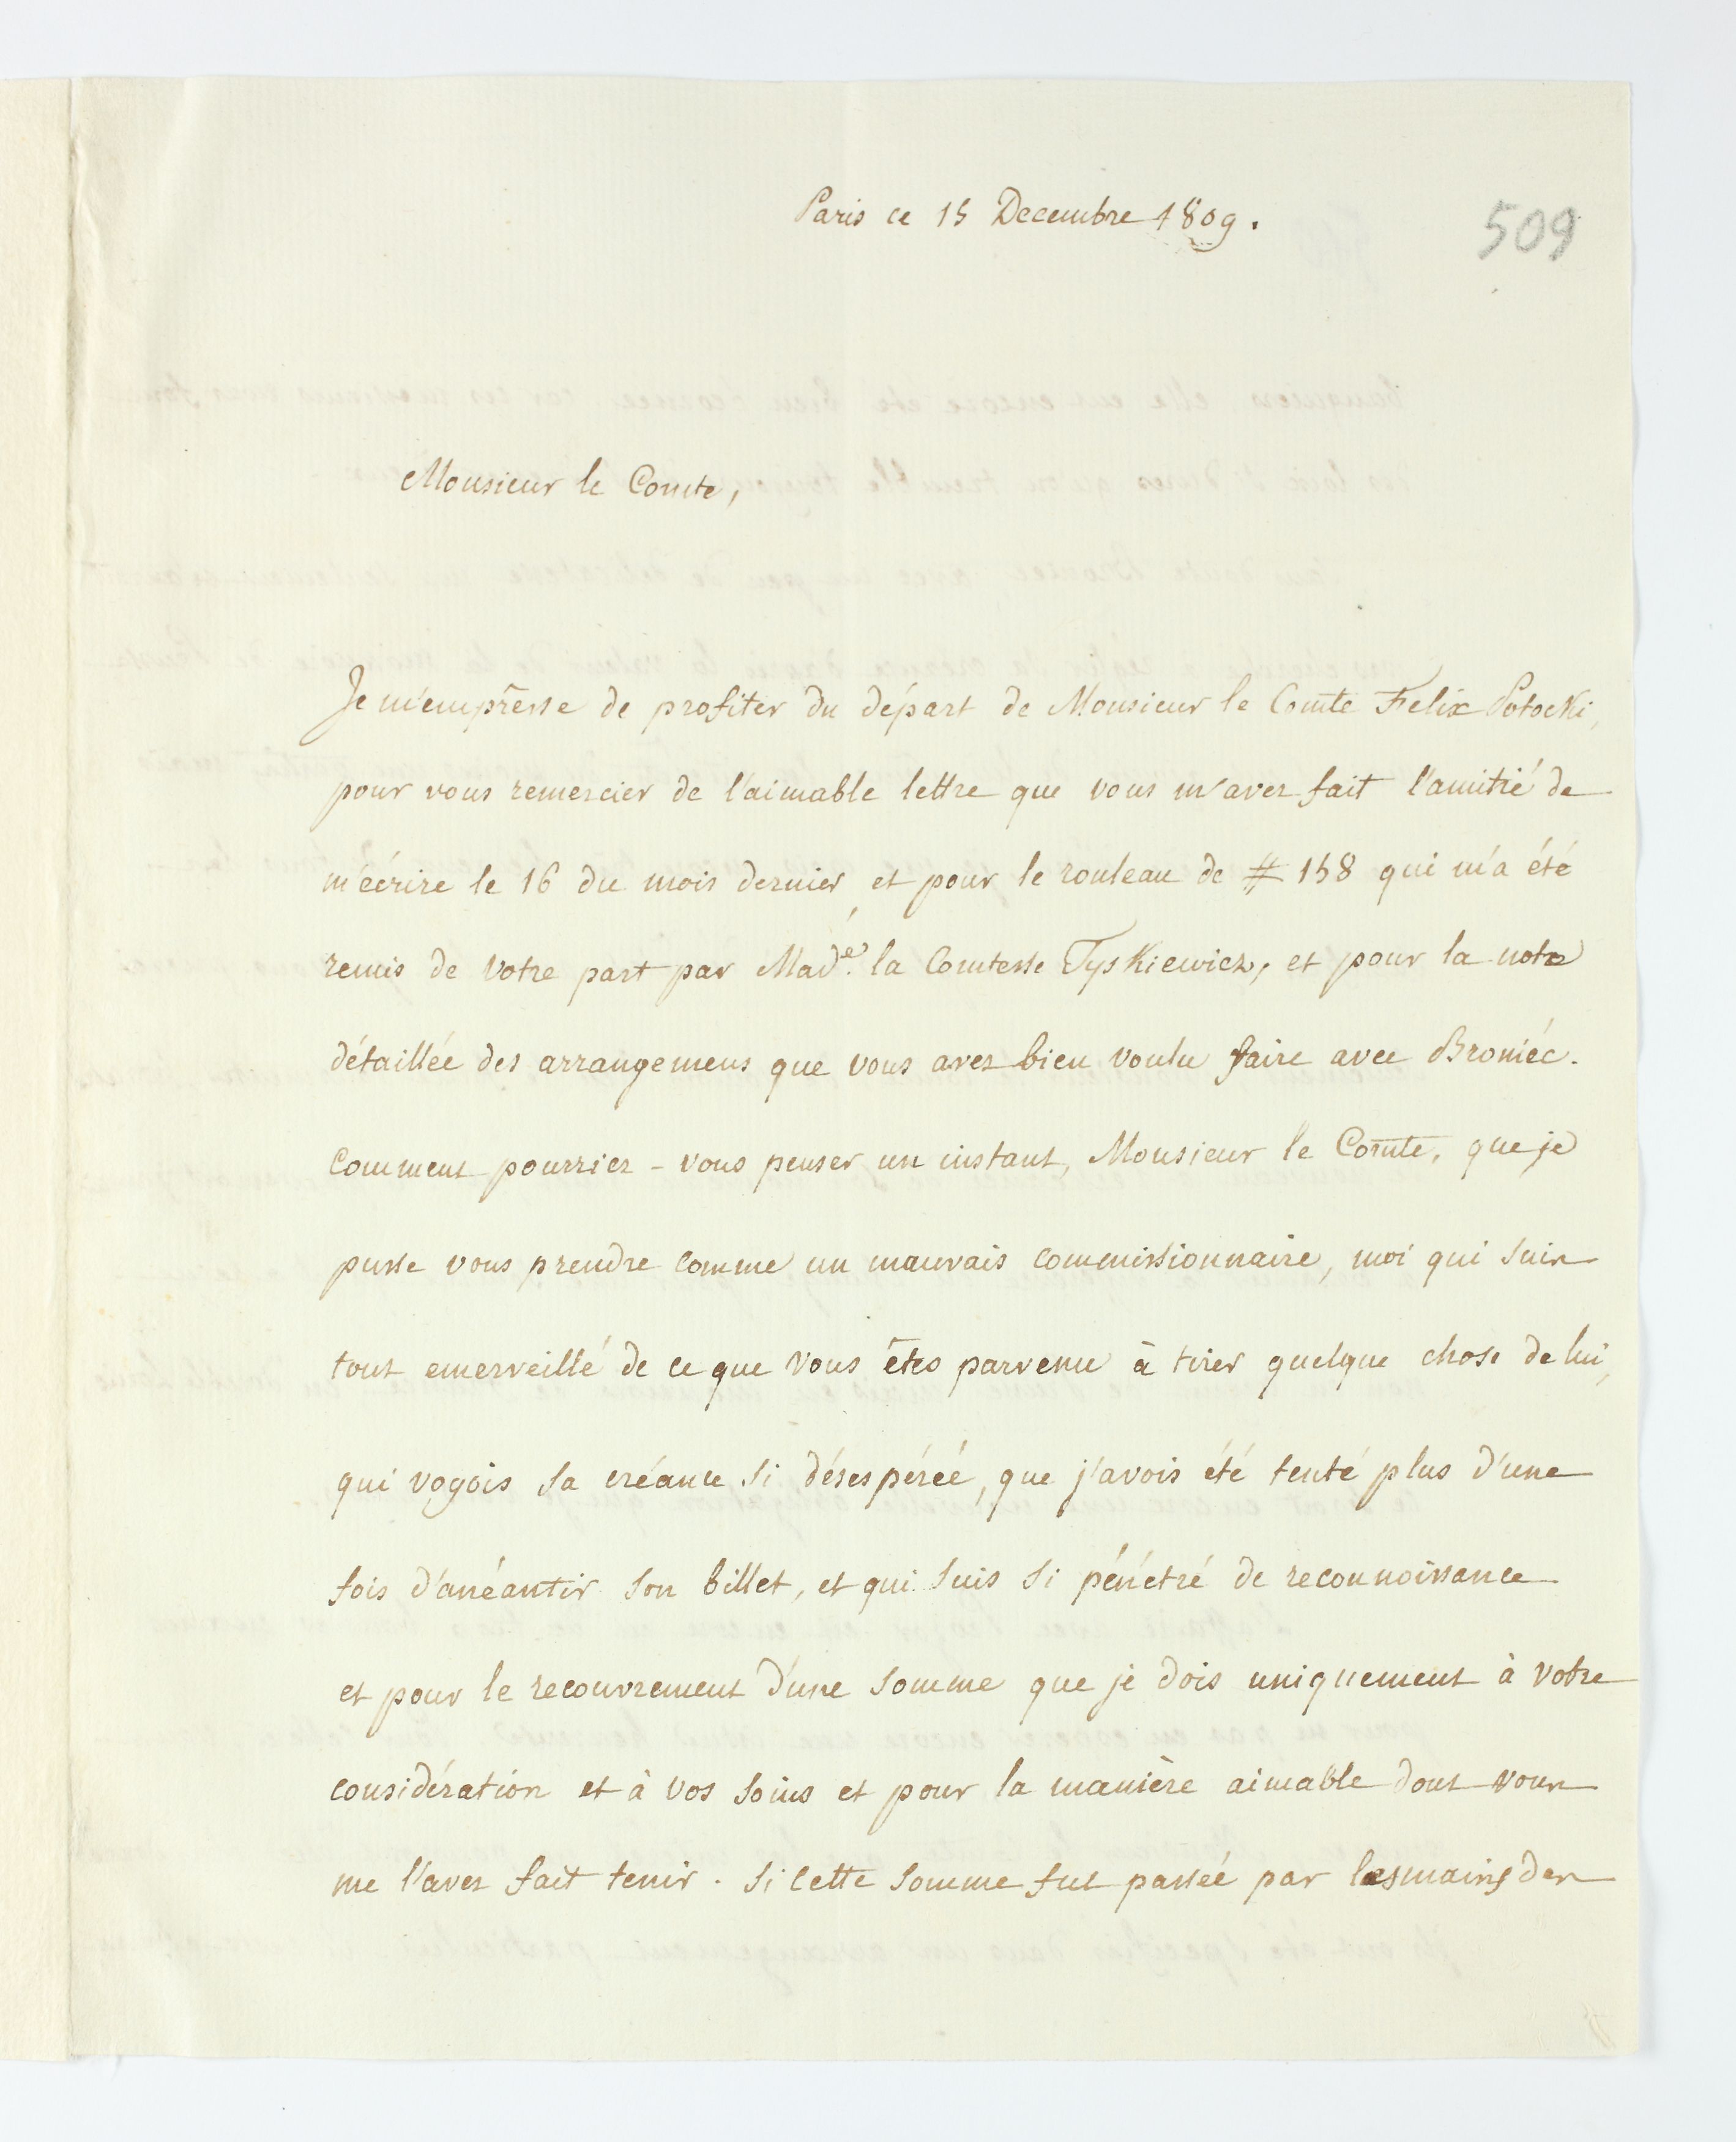 Paris ce 15 Decembre 1809.
509
Monsieur le Comte,
Je m'empresse de profiter du départ de Monsieur le Comte Felix Potocki,
pour vous remercier de l'aimable lettre que vous m'avez fait l'amitié de
m'écrire le 16 du mois dernier, et pour le rouleau de # 158 qui m'a été
remis de votre part par Made. la Comtesse Tyskiewicz, et pour la note
détaillée des arrangemens que vous avez bien voulu faire avec Broniéc.
Comment pourriez-vous penser un instant, Monsieur le Comte, que je
pusse vous prendre comme un mauvais commissionnaire, moi qui suis
tout emerveillé de ce que vous êtes parvenu à tirer quelque chose de lui,
qui voyois sa créance si désespérée, que j'avois été tenté plus d'une
fois d'anéantir son billet, et qui suis si pénétré de reconnoissance
et pour le recouvrement d'une somme que je dois uniquement à votre
considération et à vos soins et pour la manière aimable dont vous
me l'avez fait tenir. Si cette somme fut passée par les mains des